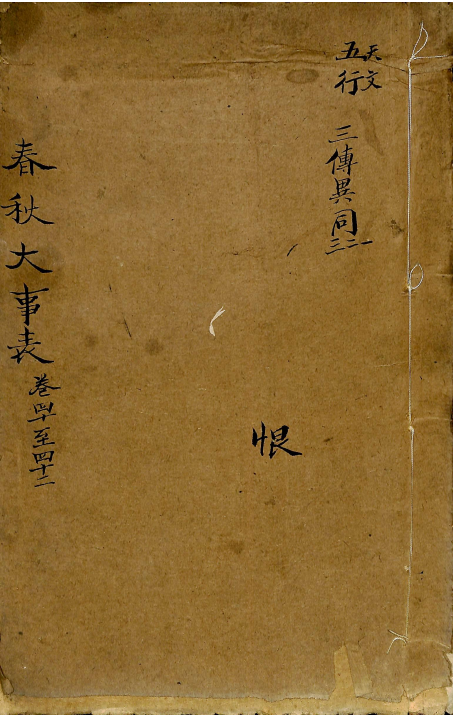 天文
五行
三傳異同
一二三
恨
春秋大事表
卷四十至四十二